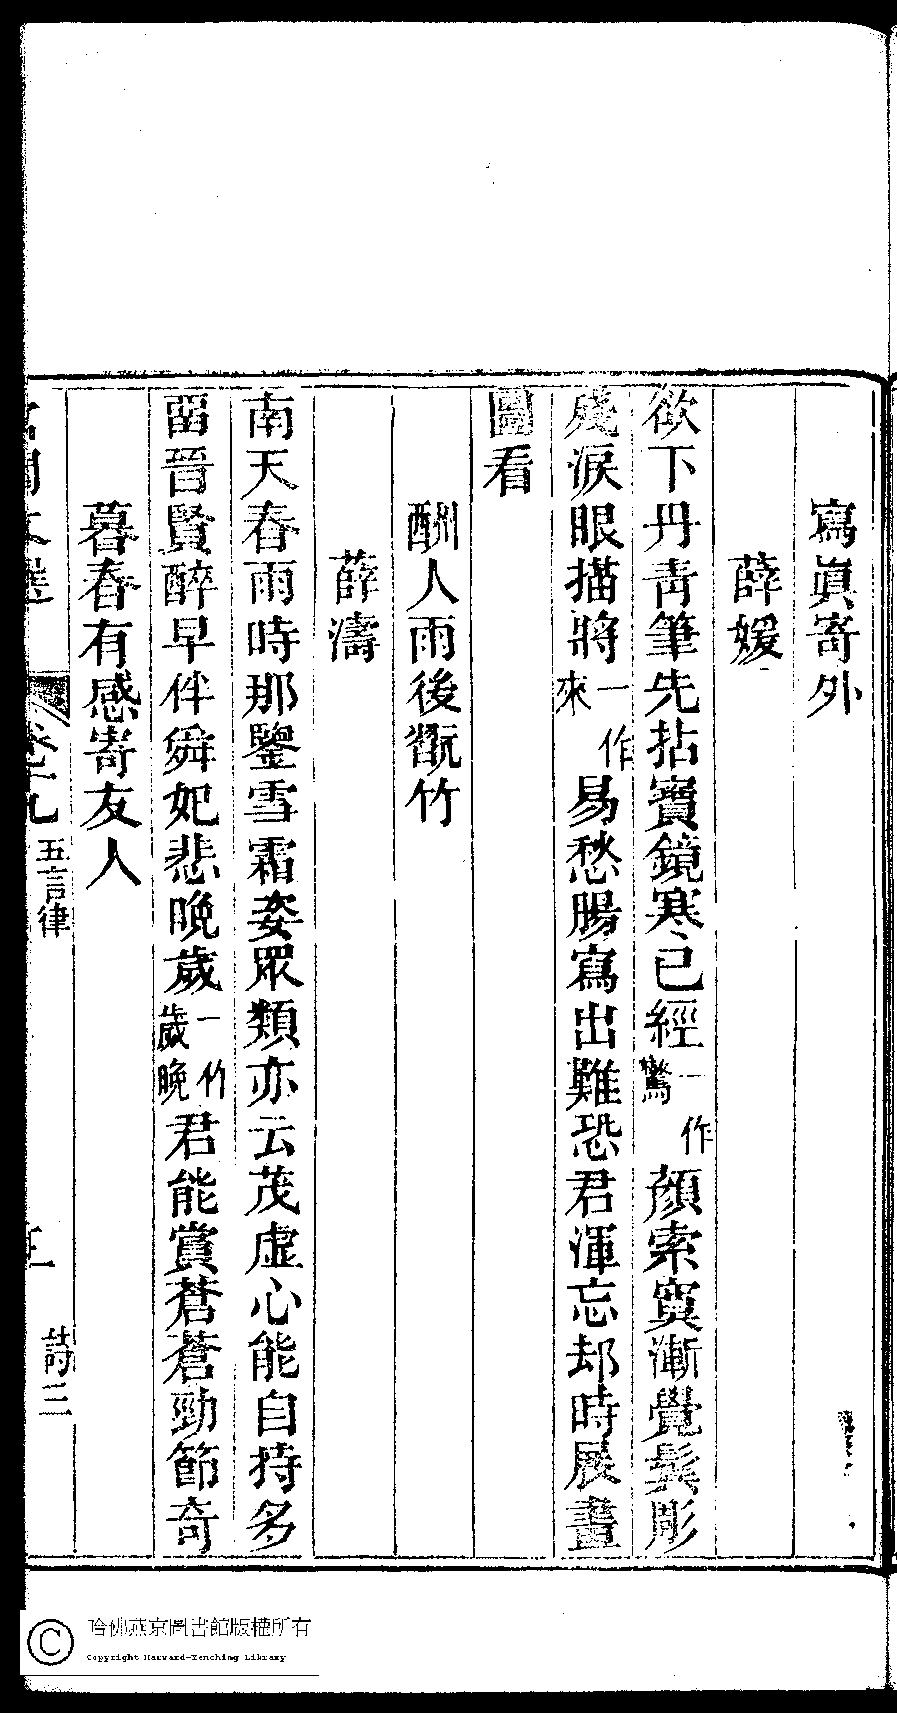 寫眞寄外
薛媛
欲下丹靑筆先拈寶鏡寒已經一作驚顔索寞漸覺鬓彫
殘淚眼描將一作來易愁腸寫出難恐君渾忘却時展畫
圖看
酬人雨後翫竹
薛濤
南天春雨時那鑒雪霜姿眾類亦云茂虛心能自持多
畱晉賢醉早伴舜妃悲晩歲一作歲晩君能賞蒼蒼勁節奇
暮春有感寄友人
名閨文選 卷十九 五言律 詩三
哈佛燕京圖書館版權所有
Copyright Harvard-Yenching Library